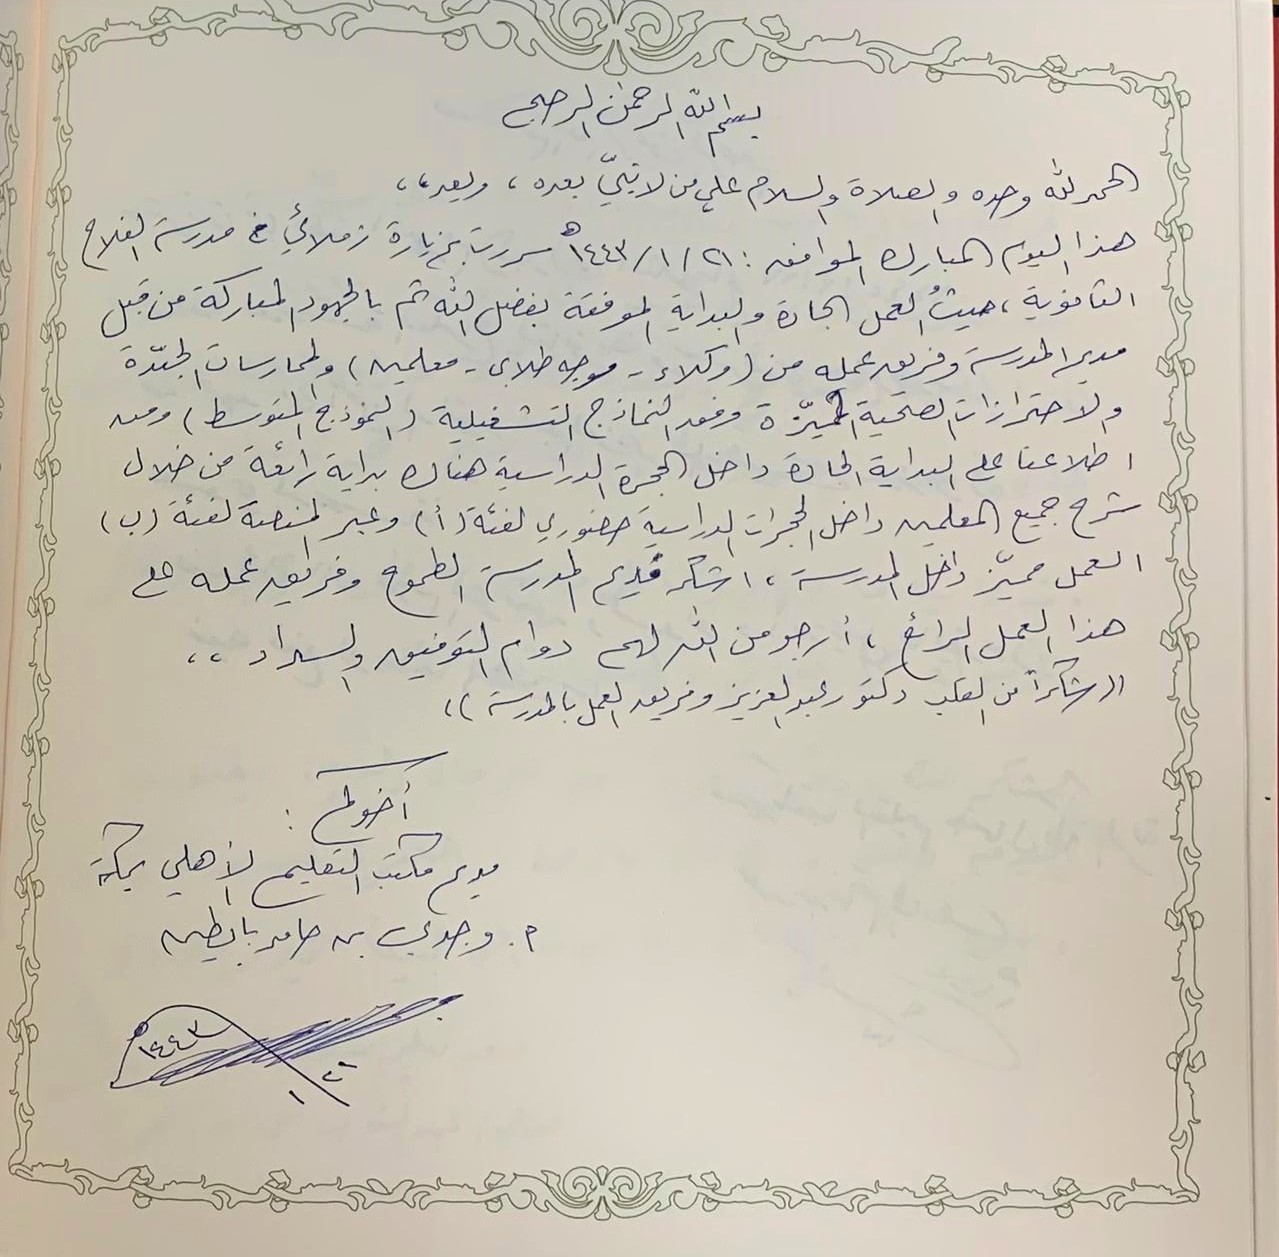 بسم الله الرحمن الرحيم
الحمد لله وحده والصلاة والسلام على من لا نبيّ بعده ، وبعد ،،
هذا اليوم المبارك الموافق : ٢١ / ١ / ١٤٤٣هـ سررت بزيارة زملائي في مدرسة الفلاح
الثانوية ، حيثُ العمل الجادة والبداية الموفقة بفضل الله ثم بالجهود المباركة من قبل
مدير المدرسة وفريق عمله من ( وكلاء - موجه طلابي - معلمين ) والممارسات الجيّدة
والاحترازات الصحية المميّزة وفق النماذج التشغيلية ( النموذج المتوسط ) ومن
اطلاعنا على البداية الجادة داخل الحجرة الدراسية هناك بداية رائعة من خلال
شرح جميع المعلمين داخل الحجرات الدراسية حضوري لفئة ( أ ) وعبر المنصة لفئة ( ب )
العمل مميّز داخل المدرسة ، اشكر مدير المدرسة الطموح وفريق عمله على
هذا العمل الرائع ، أرجو من الله لهم دوام التوفيق والسداد ،،
(( شكراً من القلب دكتور عبدالعزيز وفريق العمل بالمدرسة ))
أخوكم :
مدير مكتب التعليم الأهلي بمكة
م. وجدي بن حامد بابطين
١٤٤٣
١ ٢١